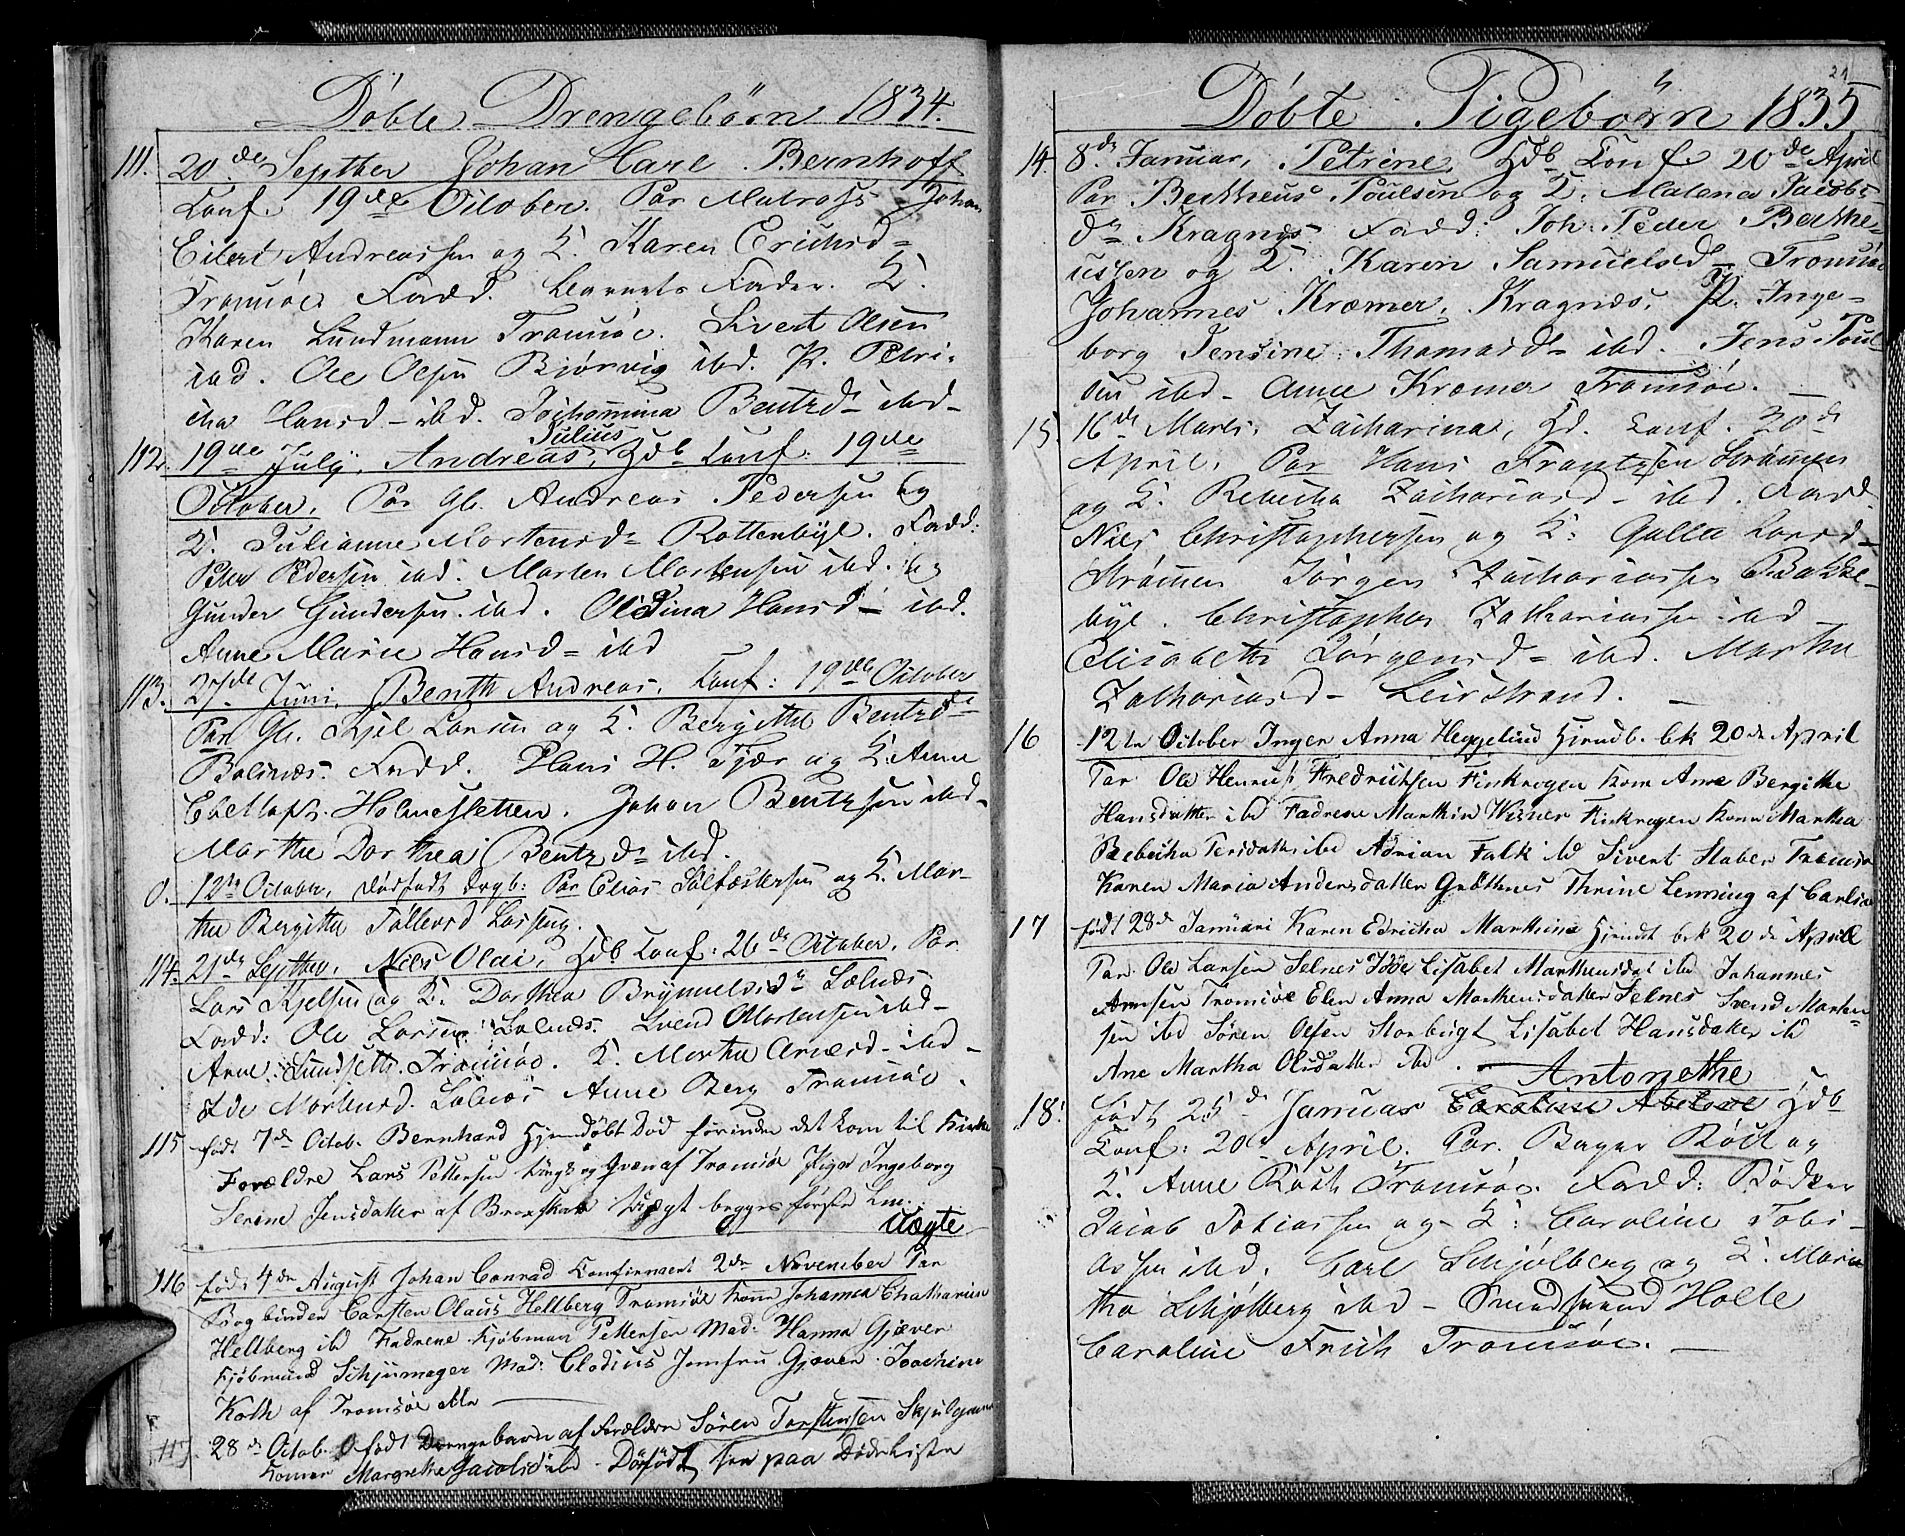 Døbte Drengebørn 1834.
111. 20de Septber Johan Carl Bernhoff
Conf. 19de October. Par Matross Johan
Eilert Andreassen og K. Karen Erichsd=
Tromsøe Fadd. Barnets Fader. K.
Karen Lundmann Tromsøe. Sivert Olsen
ibd. Ole Olsen Biørvig ibd. P. Petri-
cha Hansd- ibd. Johanna Bentzd- ibd-
Julius
112. 19de July, Andreas, Hdb Conf: 19de
October, Par Gb. Andreas Pedersen og
K. Julianne Mortensd= Rottenbye. Fadd:
Peter Pedersen ibd. Morten Mortensen ibd. og
Gunder Gundersen ibd. Oldina Hansd- ibd.
Anne Marie Hansd= ibd
113. 27de Juni, Benth Andreas, Conf: 19de October
Par Gb. Kjel Larsen og K. Bergitha Bentzd=
Balsnæs. Fadd. Hans H. Fjær og K. Anne
Holmesletten. Johan Bentzsen ibd-
Marthe Dorthea Bentzd= ibd.
0. 12te October, dødfødt Drgb: Par Elias Sølfæstersen og K. Mar-
tha Bergitha Tollevsd
114. 21de Septber, Niels Olai, Hdb Conf: 26de October, Par
Lars Kjelsen og K. Dorthea Brynnelsd= Sælnæs
Fadd: Ole Larsen Sælnæs. Svend Mortensen ibd-
Arne Tromsøe. K. Martha Arnesd- ibd-
Ide Mortensd. Selnæs Anne Berg Tromsøe.
115 født 7de Octob. Bernhard Hjemdøbt Død forinden det kom til Kirke
Forældre Lars Pettersen af Tromsøe Pige Ingeborg
Serine Jensdatter af uægt begges første Lm.
Uægte
116 født 4de August Johan Conrad Confirmeret 2den November Par
Bogbinder Carsten Olaus Hellberg Tromsøe Kone Johanna Chatharina
Hellberg ibd Fadrene Kjøbman Pettersen Mad: Hanna Gjæver
Kjøbmand Schjumager Mad: Clodius Jomfru Gjæver Joachine
Koth af Tromsøe alle
117. 28de Octob. født Drengebarn af Forældre Søren Torstensen
Konen Margrethe Jacobsd ibd - Dødfødt see paa Dødeliste
21
Døbte Pigebørn 1835
14. 8de Januar, Petrine, Hdb Conf 20de April
Par Bertheus Poulsen og K. Malena Jacobs-
d= Kragnæs Fadd: Joh: Peder Berthe-
ussen og K. Karen Samuelsd- Tromsøe
Johannes Kræmer, Kragnæs, P. Inge-
borg Jensine Thomasd= ibd. Jens Poul-
sen ibd- Anne Kræmer Tromsøe. -
15. 16de Marts, Zacharina, Hd. Conf. 20de
April, Par Hans Frantzsen Strømmen
og K. Rebecha Zachariasd- ibd. Fadd.
Niels Christophersen og K: Larsd-
Strømmen Jørgen Zachariassen Bakke-
bye. Christopher Zachariassen ibd
Elisabeth Jørgensd= ibd. Martha
Zachariasd- Leirstrand. -
16 12te October Inger Anna Heggelund Hjemdb. bk 20de April
Par Ole Henrich Fredrichsen Finkrogen Kone Ane Bergithe
Hansdatter ibd Fadrene Marthin Wisner Finkrogen Kone Martha
Rebecha Persdatter ibd Adrian Falk ibd Sivert Staber Tromsøe
Karen Maria Andersdatter Grøthnes Thrine Lemning af
17 født 28de Januari Karen Edricha Marthina Hjemdt bek 20de April
Par Ole Larsen Selnes Lisabet Marthensdat ibd Johannes
Arnsen Tromsøe Elen Anna Marthensdatter Selnes Svend Marten-
sen ibd Søren Olsen Storbugt Lisabet Hansdatter ibd
Ane Martha Olsdatter ibd.
Antonethe
18. født 25de Januar Caroline Abelone Hdb
Conf: 20de April. Par. Bager Røst og
K. Anne Røst Tromsøe. Fadd: Bødker
Jacob Tobiassen og K. Caroline Tobi-
assen ibd. Carl Schjølberg og K. Mari-
tha Schjølberg ibd - Smedsvend Holte
Caroline Frich Tromsøe. -